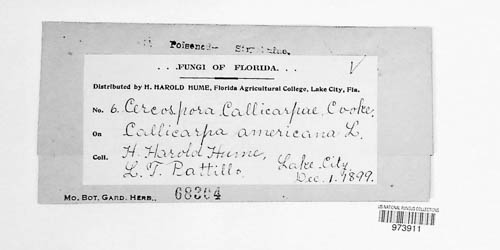 Poisoned-- Strychnine.
. . .FUNGI OF FLORIDA. . .
Distributed by H. HAROLD HUME, Florida Agricultural College, Lake City, Fla.
No. 6. Cercospora Callicarpae, Cooke,
On Callicarpa americana L.
Coll. H. Harold Hume, Lake City,
L. T. Pattillo Dec. 1, 1899.
MO. BOT. GARD. HERB., 68304
US NATIONAL FUNGUS COLLECTIONS
973911